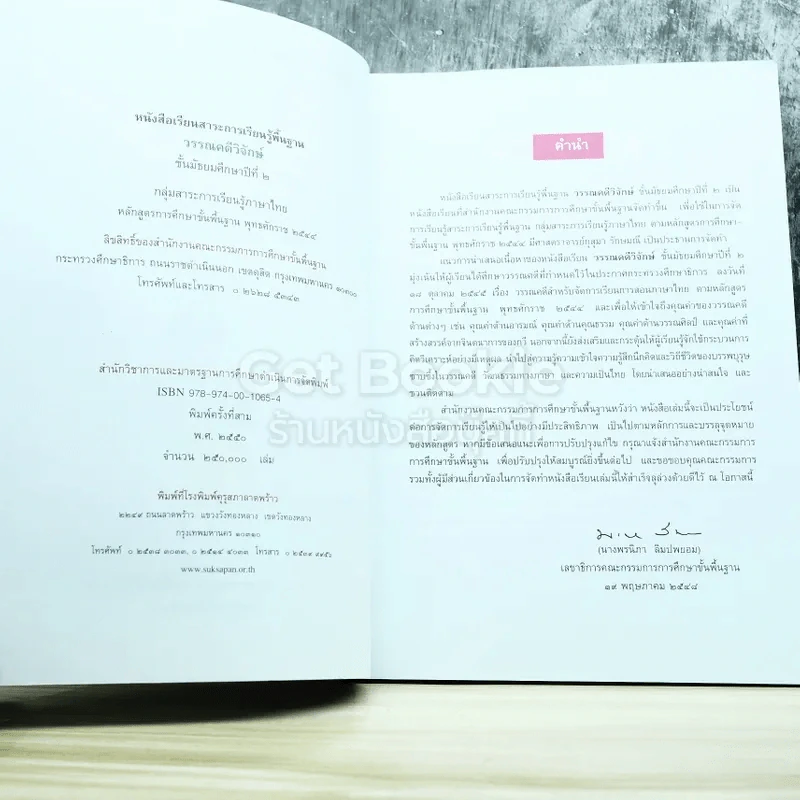 หนังสือเรียนสาระการเรียนรู้พื้นฐาน
วรรณคดีวิจักษ์
ชั้นมัธยมศึกษาปีที่ ๒
กลุ่มสาระการเรียนรู้ภาษาไทย
หลักสูตรการศึกษาขั้นพื้นฐาน พุทธศักราช ๒๕๔๔
ลิขสิทธิ์ของสำนักงานคณะกรรมการการศึกษาขั้นพื้นฐาน
กระทรวงศึกษาธิการ ถนนราชดำเนินนอก เขตดุสิต กรุงเทพมหานคร ๑๐๓๐๐
โทรศัพท์และโทรสาร ๐ ๒๖๒๘ ๕๓๔๓
สำนักวิชาการและมาตรฐานการศึกษาดำเนินการจัดพิมพ์
ISBN 978-974-00-1065-4
พิมพ์ครั้งที่สาม
พ.ศ. ๒๕๕๐
จำนวน ๒๕๐,๐๐๐ เล่ม
พิมพ์ที่โรงพิมพ์คุรุสภาลาดพร้าว
๒๒๔๙ ถนนลาดพร้าว แขวงวังทองหลาง เขตวังทองหลาง
กรุงเทพมหานคร ๑๐๓๑๐
โทรศัพท์ ๐ ๒๕๓๘ ๓๐๓๓, ๐ ๒๕๑๔ ๔๐๓๓ โทรสาร ๐ ๒๕๓๙ ๙๙๕๖
www.suksapan.or.th
คำนำ
หนังสือเรียนสาระการเรียนรู้พื้นฐาน วรรณคดีวิจักษ์ ชั้นมัธยมศึกษาปีที่ ๒ เป็น
หนังสือเรียนที่สำนักงานคณะกรรมการการศึกษาขั้นพื้นฐานจัดทำขึ้น เพื่อใช้ในการจัด
การเรียนรู้สาระการเรียนรู้พื้นฐาน กลุ่มสาระการเรียนรู้ภาษาไทย ตามหลักสูตรการศึกษา-
ขั้นพื้นฐาน พุทธศักราช ๒๕๔๔ มีศาสตราจารย์กุสุมา รักษมณี เป็นประธานการจัดทำ
แนวการนำเสนอเนื้อหาของหนังสือเรียน วรรณคดีวิจักษ์ ชั้นมัธยมศึกษาปีที่ ๒
มุ่งเน้นให้ผู้เรียนได้ศึกษาวรรณคดีที่กำหนดไว้ในประกาศกระทรวงศึกษาธิการ ลงวันที่
๑๘ ตุลาคม ๒๕๔๕ เรื่อง วรรณคดีสำหรับจัดการเรียนการสอนภาษาไทย ตามหลักสูตร
การศึกษาขั้นพื้นฐาน พุทธศักราช ๒๕๔๔ และเพื่อให้เข้าใจถึงคุณค่าของวรรณคดี
ด้านต่างๆ เช่น คุณค่าด้านอารมณ์ คุณค่าด้านคุณธรรม คุณค่าด้านวรรณศิลป์ และคุณค่าที่
สร้างสรรค์จากจินตนาการของกวี นอกจากนี้ยังส่งเสริมและกระตุ้นให้ผู้เรียนรู้จักใช้กระบวนการ
คิดวิเคราะห์อย่างมีเหตุผล นำไปสู่ความรู้ความเข้าใจความรู้สึกนึกคิดและวิถีชีวิตของบรรพบุรุษ
ซาบซึ้งในวรรณคดี วัฒนธรรมทางภาษา และความเป็นไทย โดยนำเสนออย่างน่าสนใจ และ
ชวนติดตาม
สำนักงานคณะกรรมการการศึกษาขั้นพื้นฐานหวังว่า หนังสือเล่มนี้จะเป็นประโยชน์
ต่อการจัดการเรียนรู้ให้เป็นไปอย่างมีประสิทธิภาพ เป็นไปตามหลักการและบรรลุจุดหมาย
ของหลักสูตร หากมีข้อเสนอแนะเพื่อการปรับปรุงแก้ไข กรุณาแจ้งสำนักงานคณะกรรมการ
การศึกษาขั้นพื้นฐาน เพื่อปรับปรุงให้สมบูรณ์ยิ่งขึ้นต่อไป และขอขอบคุณคณะกรรมการ
รวมทั้งผู้มีส่วนเกี่ยวข้องในการจัดทำหนังสือเรียนเล่มนี้ให้สำเร็จลุล่วงด้วยดีไว้ ณ โอกาสนี้
(นางพรนิภา ลิมปพยอม)
เลขาธิการคณะกรรมการการศึกษาขั้นพื้นฐาน
๑๙ พฤษภาคม ๒๕๔๘
Get Bookie
ร้านหนังสือ